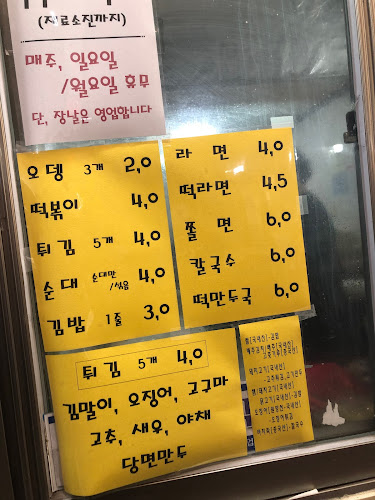 (재료소진까지)
매주, 일요일
/월요일 휴무
단, 장날은 영업합니다
오뎅 3개 2,0
떡볶이 4,0
튀김 5개 4,0
순대 순대만/섞음 4,0
김밥 1줄 3,0
라면 4,0
떡라면 4,5
쫄면 6,0
칼국수 6,0
떡만두국 6,0
튀김 5개 4,0
김말이, 오징어, 고구마
고추, 새우, 야채
당면만두
쌀(국내산)-김밥
돼지고기(국내산)